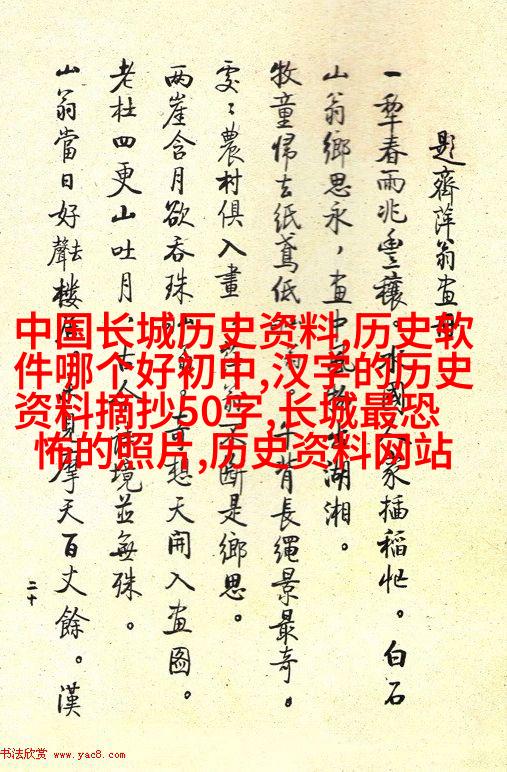 題齊萍翁畫冊
一犁春雨兆豐穰。水國人家插稻忙。白石
山翁鄉思永，畫中湖湘。
牧童歸去紙鳶低牛背長繩景最奇。
處々農村俱入畫不斷是鄉思。
兩崖含月欲吞珠奇想天開入畫圖。
老杜四更山吐月，古今詩境並無殊。
山翁當日好去聲樓居見摩天百丈餘。漢
二十
中国长城历史资料,历史软
件哪个好初中,汉字的历史
资料摘抄50字,长城最恐
怖的照片,历史资料网站
书法欣赏 www.yac8.com